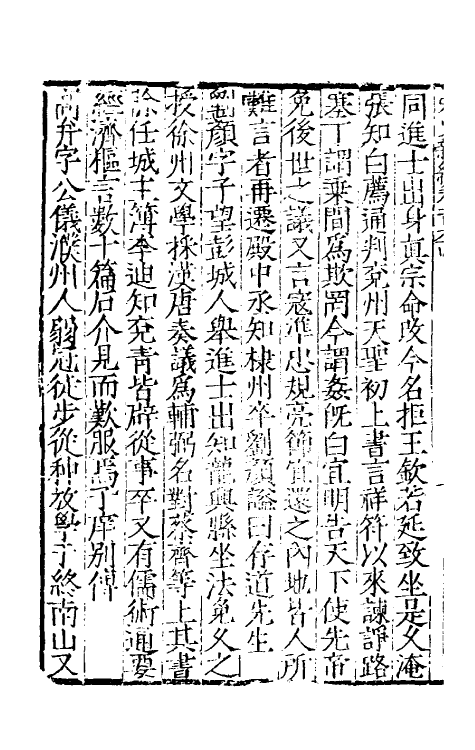 同進士出身真宗命改今名拒王欽若延致坐是久淹
張知白薦通判兗州天聖初上書言祥符以來諫諍路
塞丁謂乗間爲欺罔今謂姦旣白宜明告天下使先帝
免後世之議又言寇準忠規亮節宜還之內地皆人所
難言者再遷殿中丞知棣州卒劉顏謚曰存道先生
劉顏字子望彭城人舉進士出知龍興縣坐法免久之
授徐州文學採漢唐奏議爲輔弼名對蔡齊等上其書
除任城主簿李迪知兗靑皆辟從事卒又有儒術通要
經濟樞言數十篇石介見而歎服焉子庠別傳
高弁字公儀濮州人弱冠徒步從种放學于終南山又